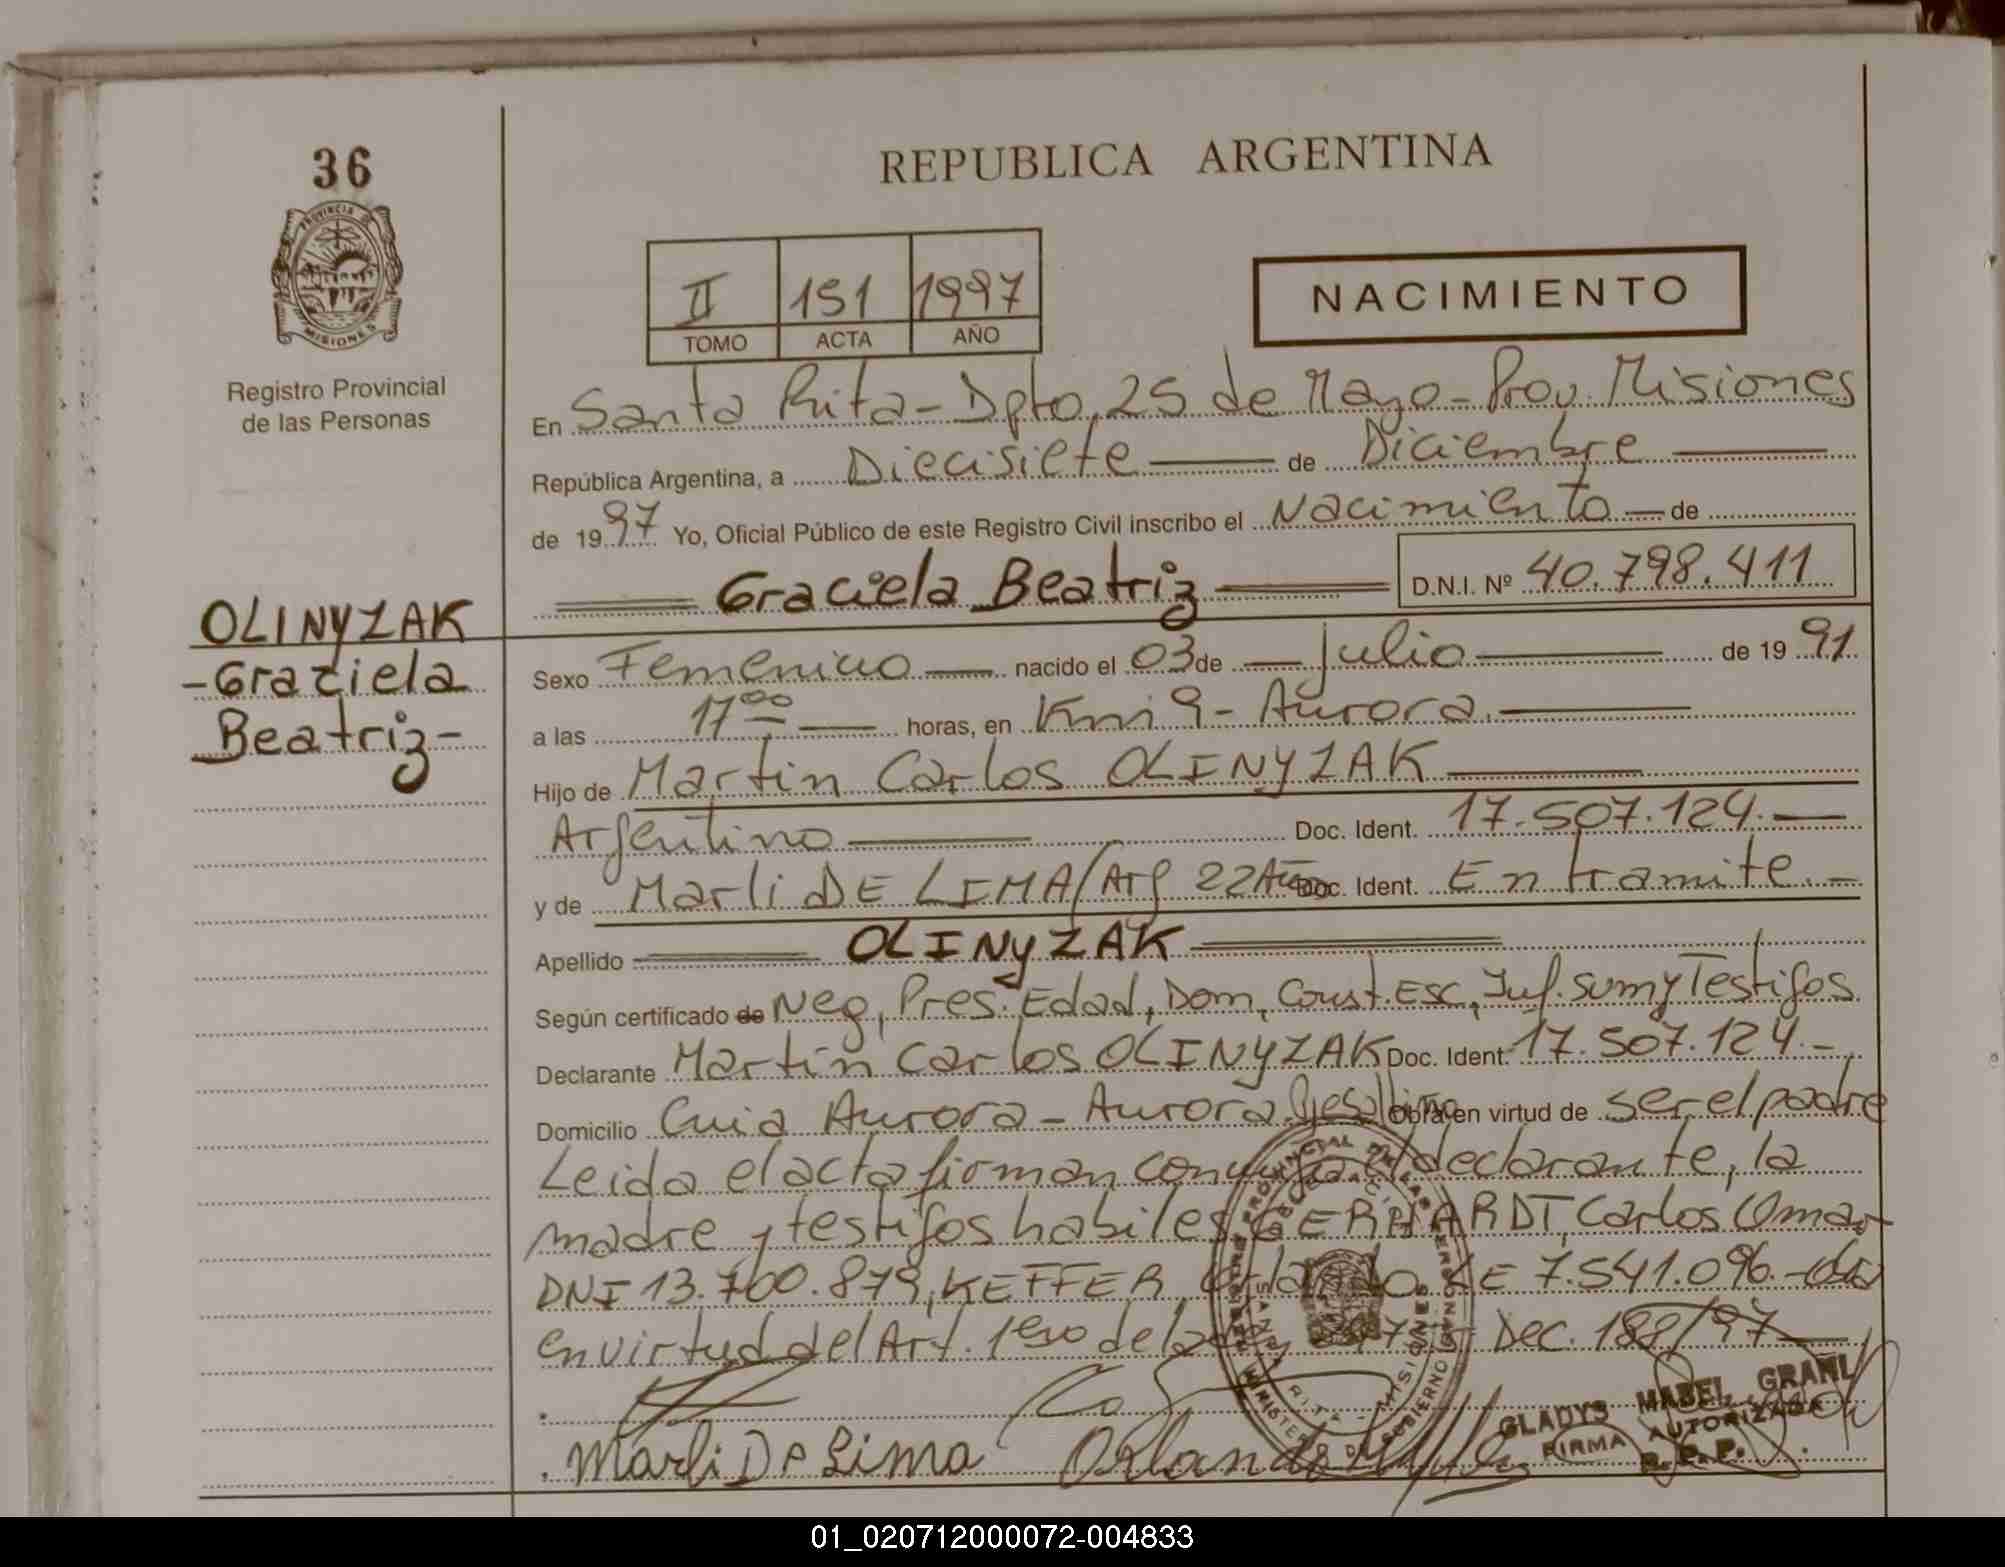 36
REPUBLICA ARGENTINA
PROVINCIA DE
MISIONES
Registro Provincial
de las Personas
II 151 1997
TOMO ACTA AÑO
NACIMIENTO
En Santa Rita - Dpto. 25 de Mayo - Prov. Misiones
República Argentina, a Diecisiete de Diciembre
de 1997 Yo, Oficial Público de este Registro Civil inscribo el Nacimiento de
Graciela Beatriz D.N.I. Nº 40.798.411
OLINYZAK
-Graciela
Beatriz-
Sexo Femenino nacido el 03 de Julio de 1991
a las 17 00 horas, en Km 9 - Aurora.
Hijo de Martin Carlos OLINYZAK
Argentino Doc. Ident. 17.507.124.
y de Marli DE LIMA/Arg 22 Años Doc. Ident. En tramite.
Apellido OLINYZAK
Según certificado de Neg, Pres. Edad, Dom, Const. Esc, Inf. sum y Testigos
Declarante Martin Carlos OLINYZAK Doc. Ident. 17.507.124.-
Domicilio Cuia Aurora - Aurora. Obra en virtud de ser el padre
Leida el acta firman el declarante, la
madre y testigos habiles GERHARDT, Carlos Omar
DNI 13.700.879, KEFFER Orlando LE 7.541.096.-
en virtud del Art. 1ero de la Dec. 188/97
Marli De Lima Orlando
GLADYS MABEL GRAHL
FIRMA AUTORIZADA
R.P.P.
01_020712000072-004833